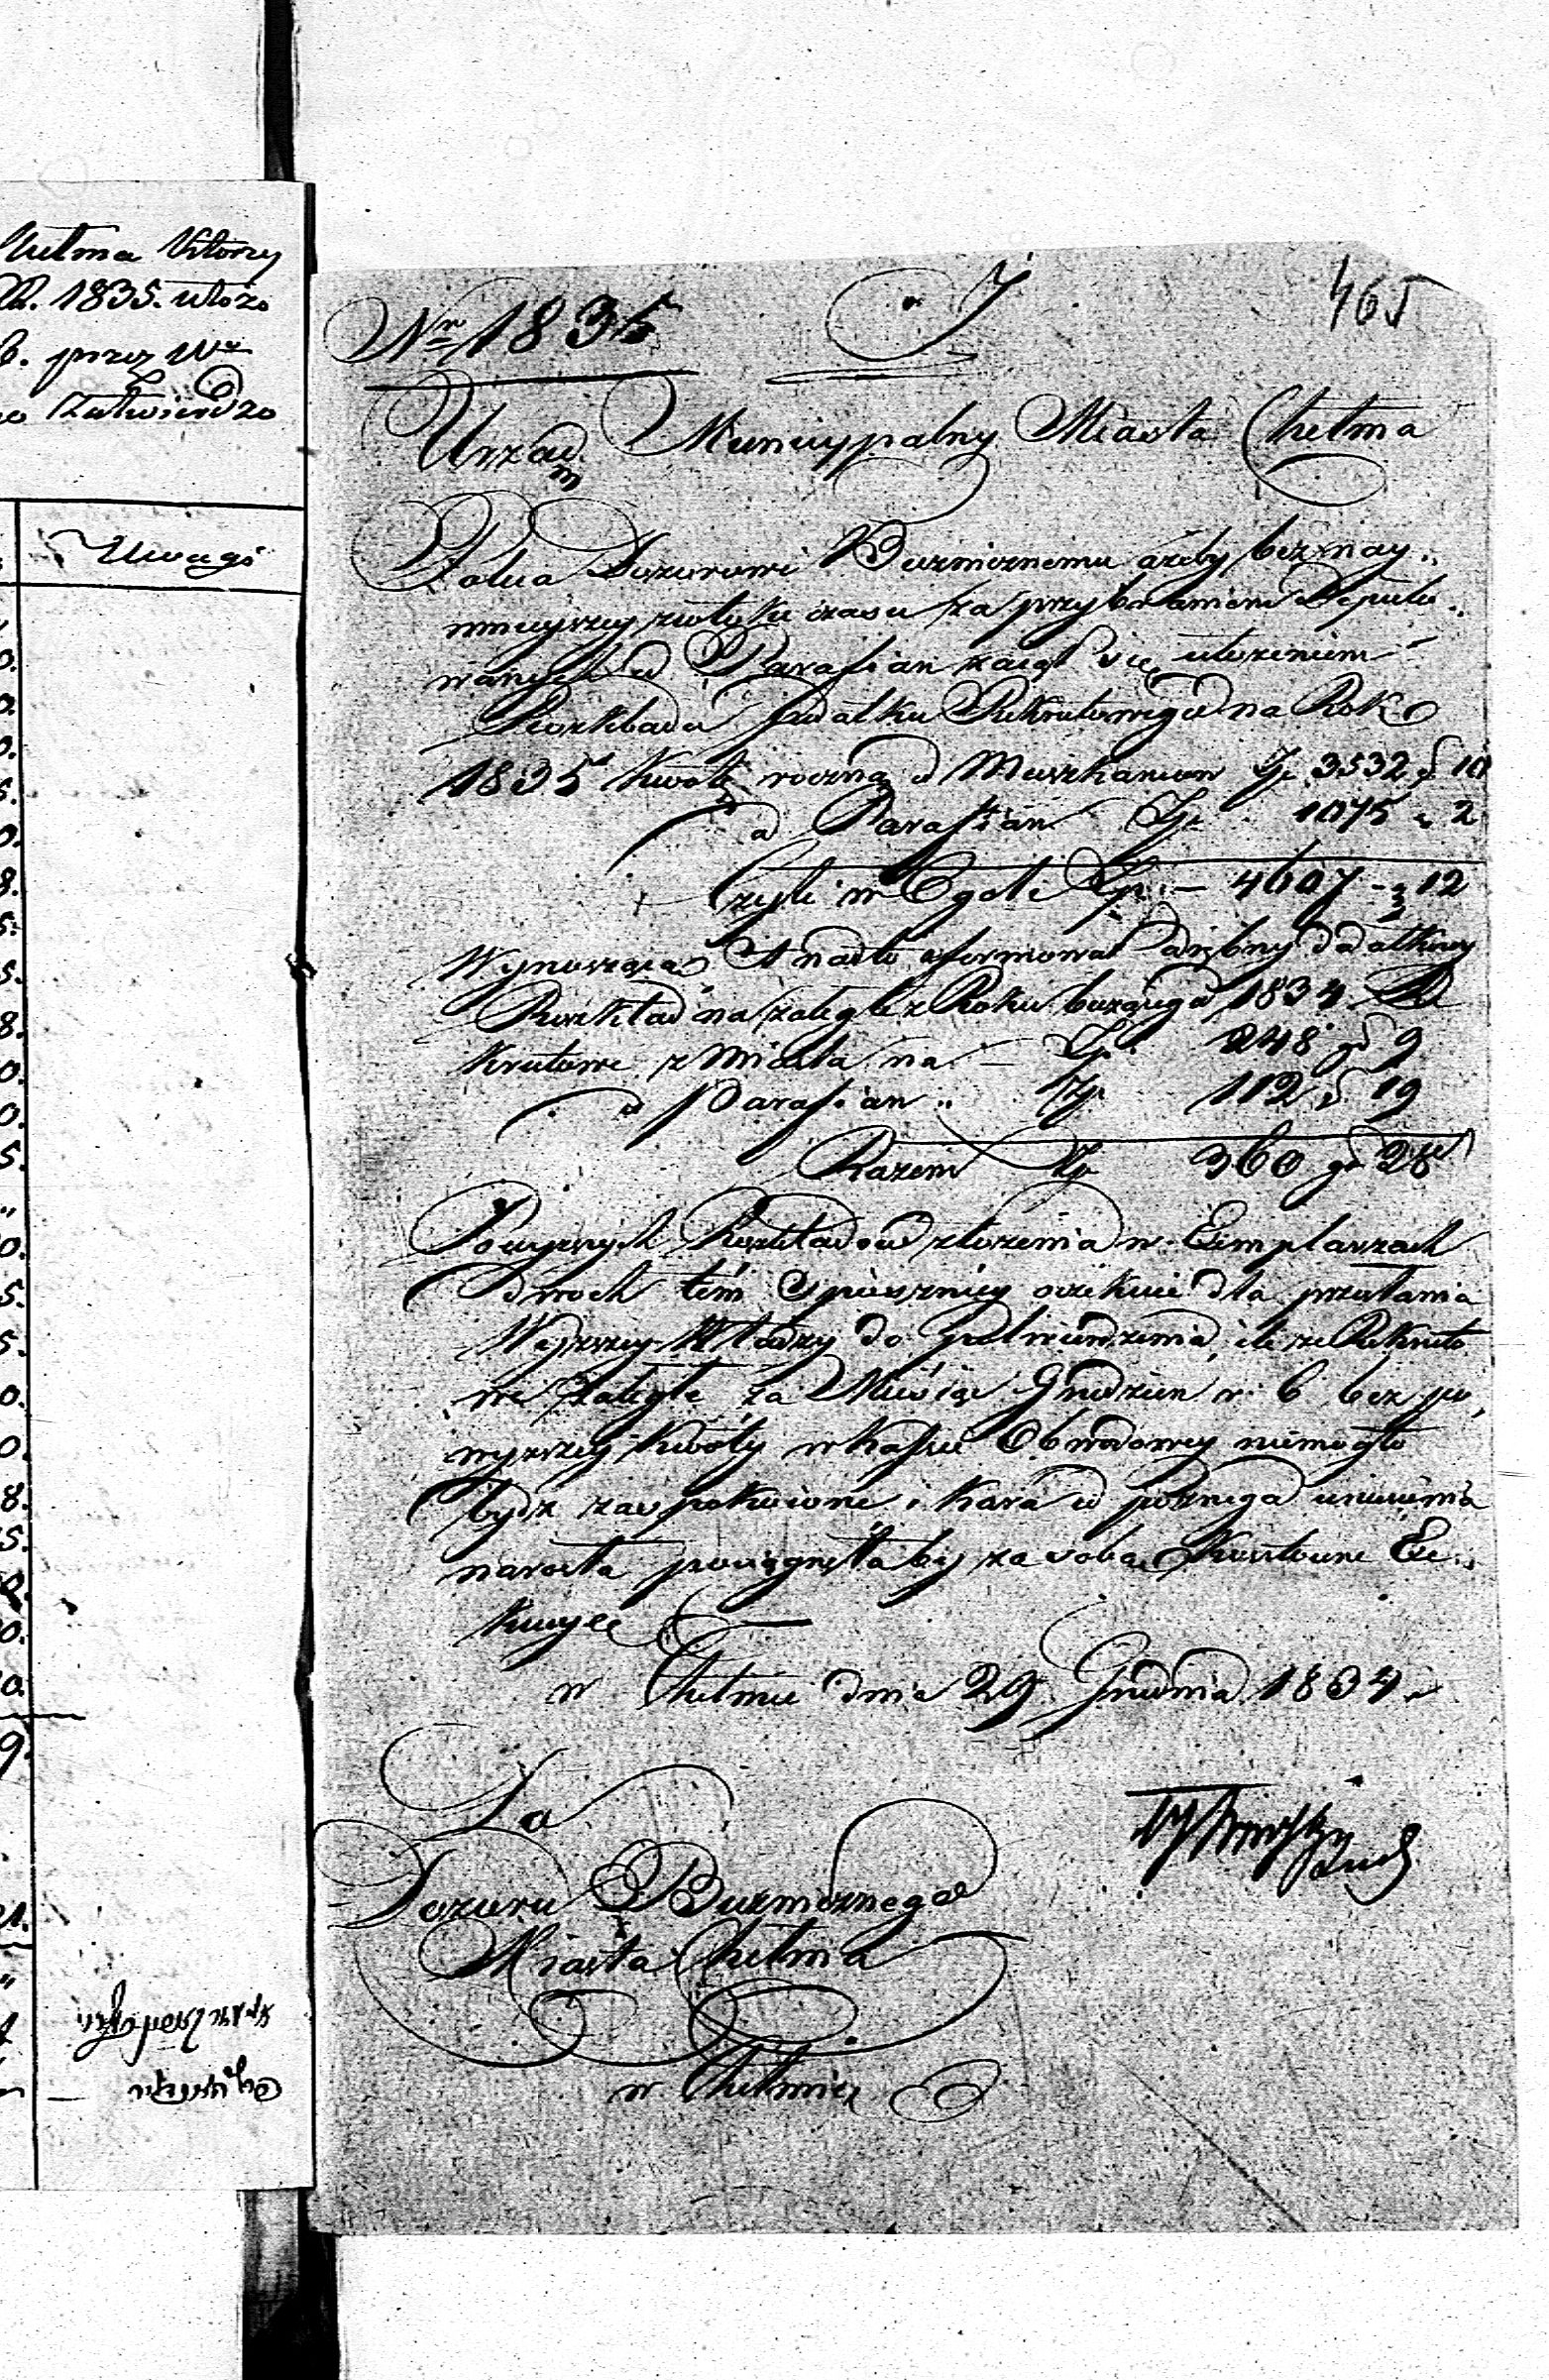 Chełma którzy
R. 1835. ułożo
b. przez W
Zatwierdzo
Uwagi
465
Nr 1835
Urząd Municypalny Miasta Chełma
Zaleca Dozorowi Bużnicznemu ażeby bez nay„
mnieyszey zwłoki czasu za przybraniem Deputo„
wanych od Parafian zaiął się ułożeniem
Rozkładu podatku Rekrutowego na Rok
1835 kwotę roczną od Mieszkańców Zp. 3532 g 10
od Parafian Zp. 1075 „ 2
Czyli w Ogóle Zp. — 4607 - 12
Wynoszącą A nadto uformował oddzielny dodatkowy
Rozkład na zaległe z Roku bieżącego 1834 Re
krutowe z Miasta na — Zp. 248 gr 9
od Parafian „ Zp. 112 gr 19
Razem Zp 360 gr 28
Powyższych Rozkładów złożenia w Exemplarzach
dwóch tém spieszniey oczekuie dla przesłania
Wyższey Władzy do Zatwierdzenia, ile że Rekruto
we zaległe za Miesiąc Grudzień r. b. bez po„
wyższey kwoty w Kassie Obwodowey niemogło
bydź zaspokoione i kara od późnego uiszczenia
narosła pociągnęłaby za sobą kosztowne Exe„
kucye
w Chełmie dnia 29 Grudnia 1834 r
Do
Dozoru Bużnicznego
Miasta Chełma
w Chełmie